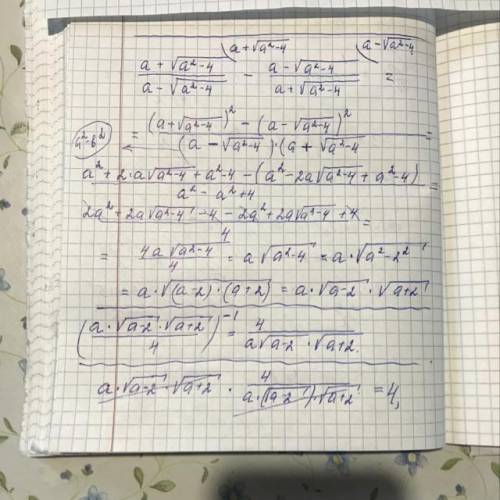 a + √(a²-4)   a - √(a²-4)
(a + √(a²-4))/(a - √(a²-4)) - (a - √(a²-4))/(a + √(a²-4)) =
= ((a+√(a²-4))² - (a - √(a²-4))²)/((a - √(a²-4))·(a + √(a²-4)) =
(a² + 2·a√(a²-4) + a²-4 - (a² - 2a√(a²-4) + a²-4))/(a² - a² + 4) =
(2a² + 2a√(a²-4) - 4 - 2a² + 2a√(a²-4) + 4)/4 =
= (4a√(a²-4))/4 = a√(a²-4) = a·√(a²-2²)
= a·√((a-2)·(a+2)) = a·√(a-2)·√(a+2)
((a·√(a-2)·√(a+2))/4)⁻¹ = 4/(a√(a-2)·√(a+2))
a·√(a-2)·√(a+2) · 4/(a·(√(a-2))·√(a+2)) = 4,